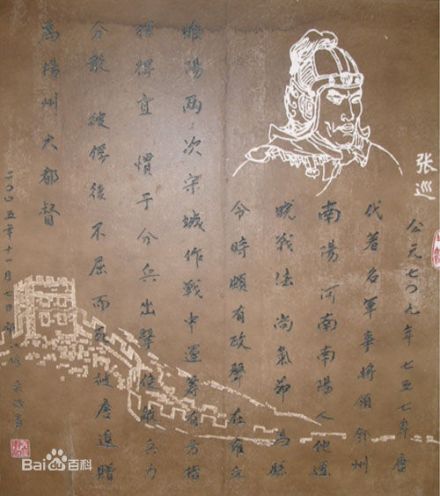 张巡
公元七〇九年七五七年唐
代著名军事将领邓州
南阳河南南阳人他通
晓战法尚气节为县
令时颇有政声在雍丘
睢阳两次守城作战中运筹有方指
挥得宜惯于分兵出击使敌兵力
分散被俘后不屈而死被唐追赠
为扬州大都督
二〇〇五年十一月七日
Bai百科